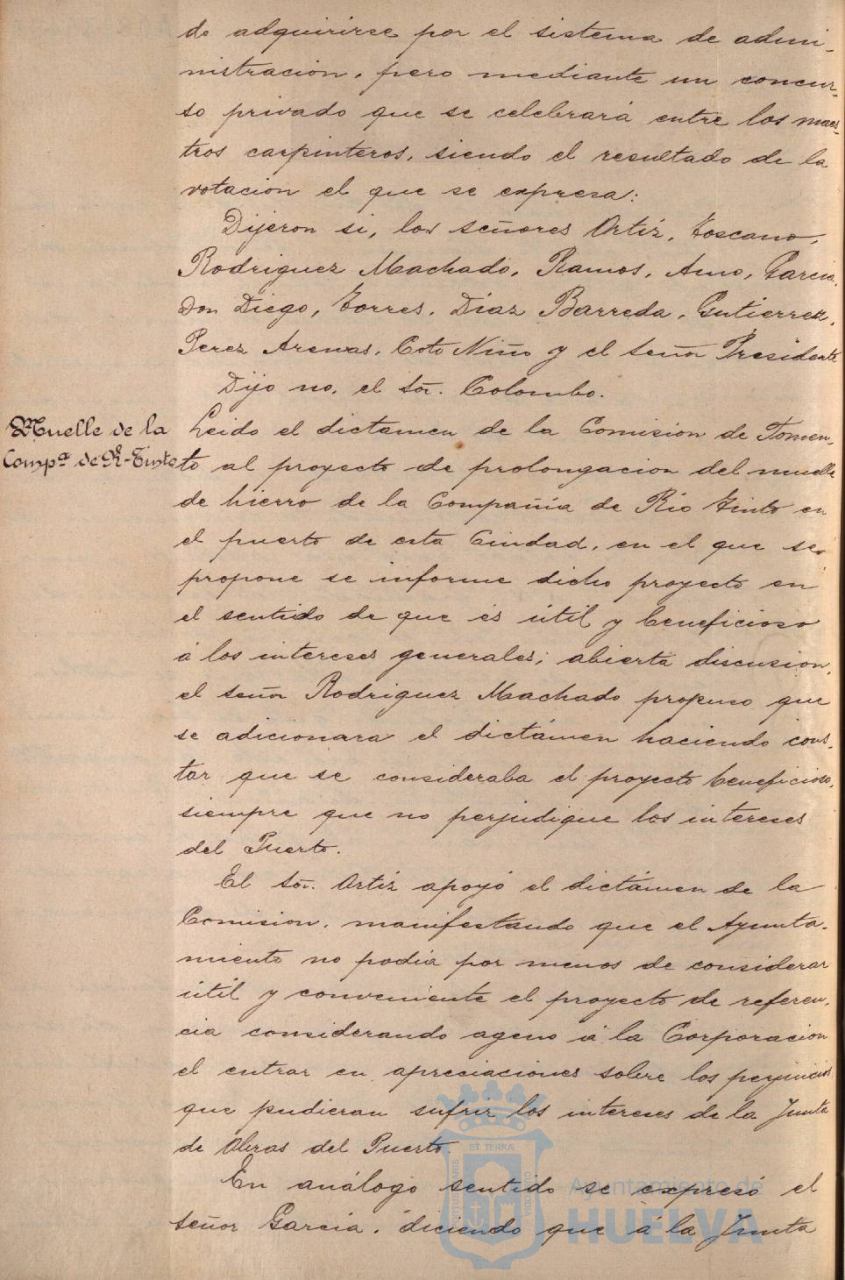 do adquirirse por el sistema de admi-
nistracion, pero mediante un concur-
so privado que se celebrará entre los maes-
tros carpinteros, siendo el resultado de la
votacion el que se expresa:
Dijeron si, los señores Ortiz, Toscano,
Rodriguez Machado, Ramos, Amo, Garcia,
Don Diego, Torres, Diaz Barreda, Gutierrez,
Perez Arenas, Coto Niño y el señor Presidente
Dijo no, el Sor. Colombo.
Muelle de la
Compª de R-Tinto
Leido el dictamen de la Comision de Fomen-
to al proyecto de prolongacion del muelle
de hierro de la Compañia de Rio Tinto en
el puerto de esta Ciudad, en el que se
propone se informe dicho proyecto en
el sentido de que és útil y beneficioso
á los intereses generales; abierta discusion,
el señor Rodriguez Machado propuso que
se adicionara el dictámen haciendo cons-
tar que se consideraba el proyecto beneficioso,
siempre que no perjudique los intereses
del Puerto.
El Sor. Ortiz apoyó el dictámen de la
Comision, manifestando que el Ayunta-
miento no podia por menos de considerar
útil y conveniente el proyecto de referen-
cia considerando ageno á la Corporacion
el entrar en apreciaciones sobre los perjuicios
que pudieran sufrir los intereses de la Junta
de Obras del Puerto.
En análogo sentido se expresó el
señor Garcia, diciendo que á la Junta
ET TERRA
Ayuntamiento de
HUELVA